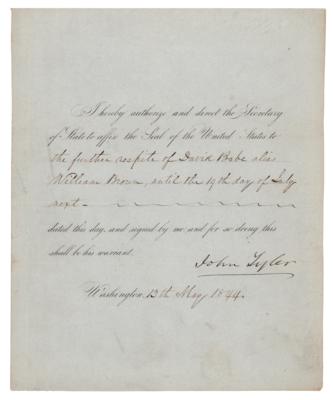 I hereby authorize and direct the Secretary
of State to affix the Seal of the United States to
the further respite of David Babe alias
William Brown, until the 19th day of July
next
dated this day, and signed by me and for so doing this
shall be his warrant.
John Tyler
Washington, 13th May, 1844.